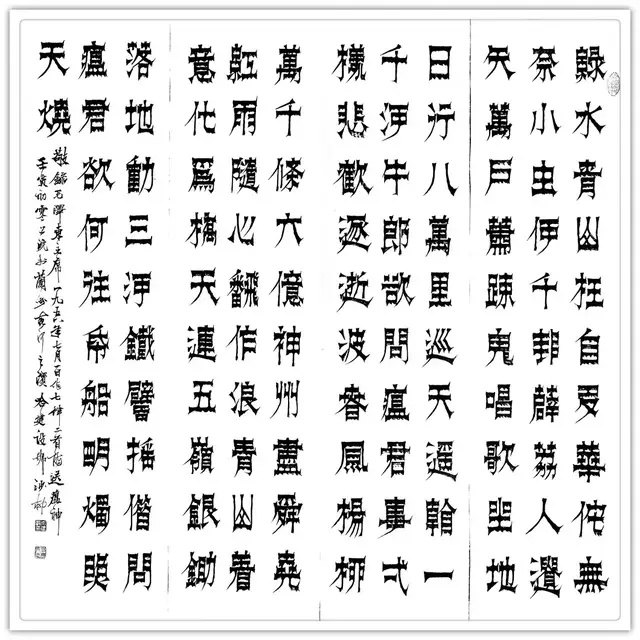 綠水青山枉自多華佗無
奈小虫何千邨薜荔人遺
矢萬戶蕭疎鬼唱歌坐地
日行八萬里巡天遥看一
千河牛郎欲問瘟君事一
樣悲歡逐逝波春風楊柳
萬千條六億神州盡舜堯
紅雨隨心翻作浪青山着
意化爲橋天連五嶺銀鋤
落地動三河鐵臂摇借問
瘟君欲何往帋船明燭照
天燒
敬錄毛澤東主席一九五八年七月一日七律二首詩送瘟神
壬寅初雪